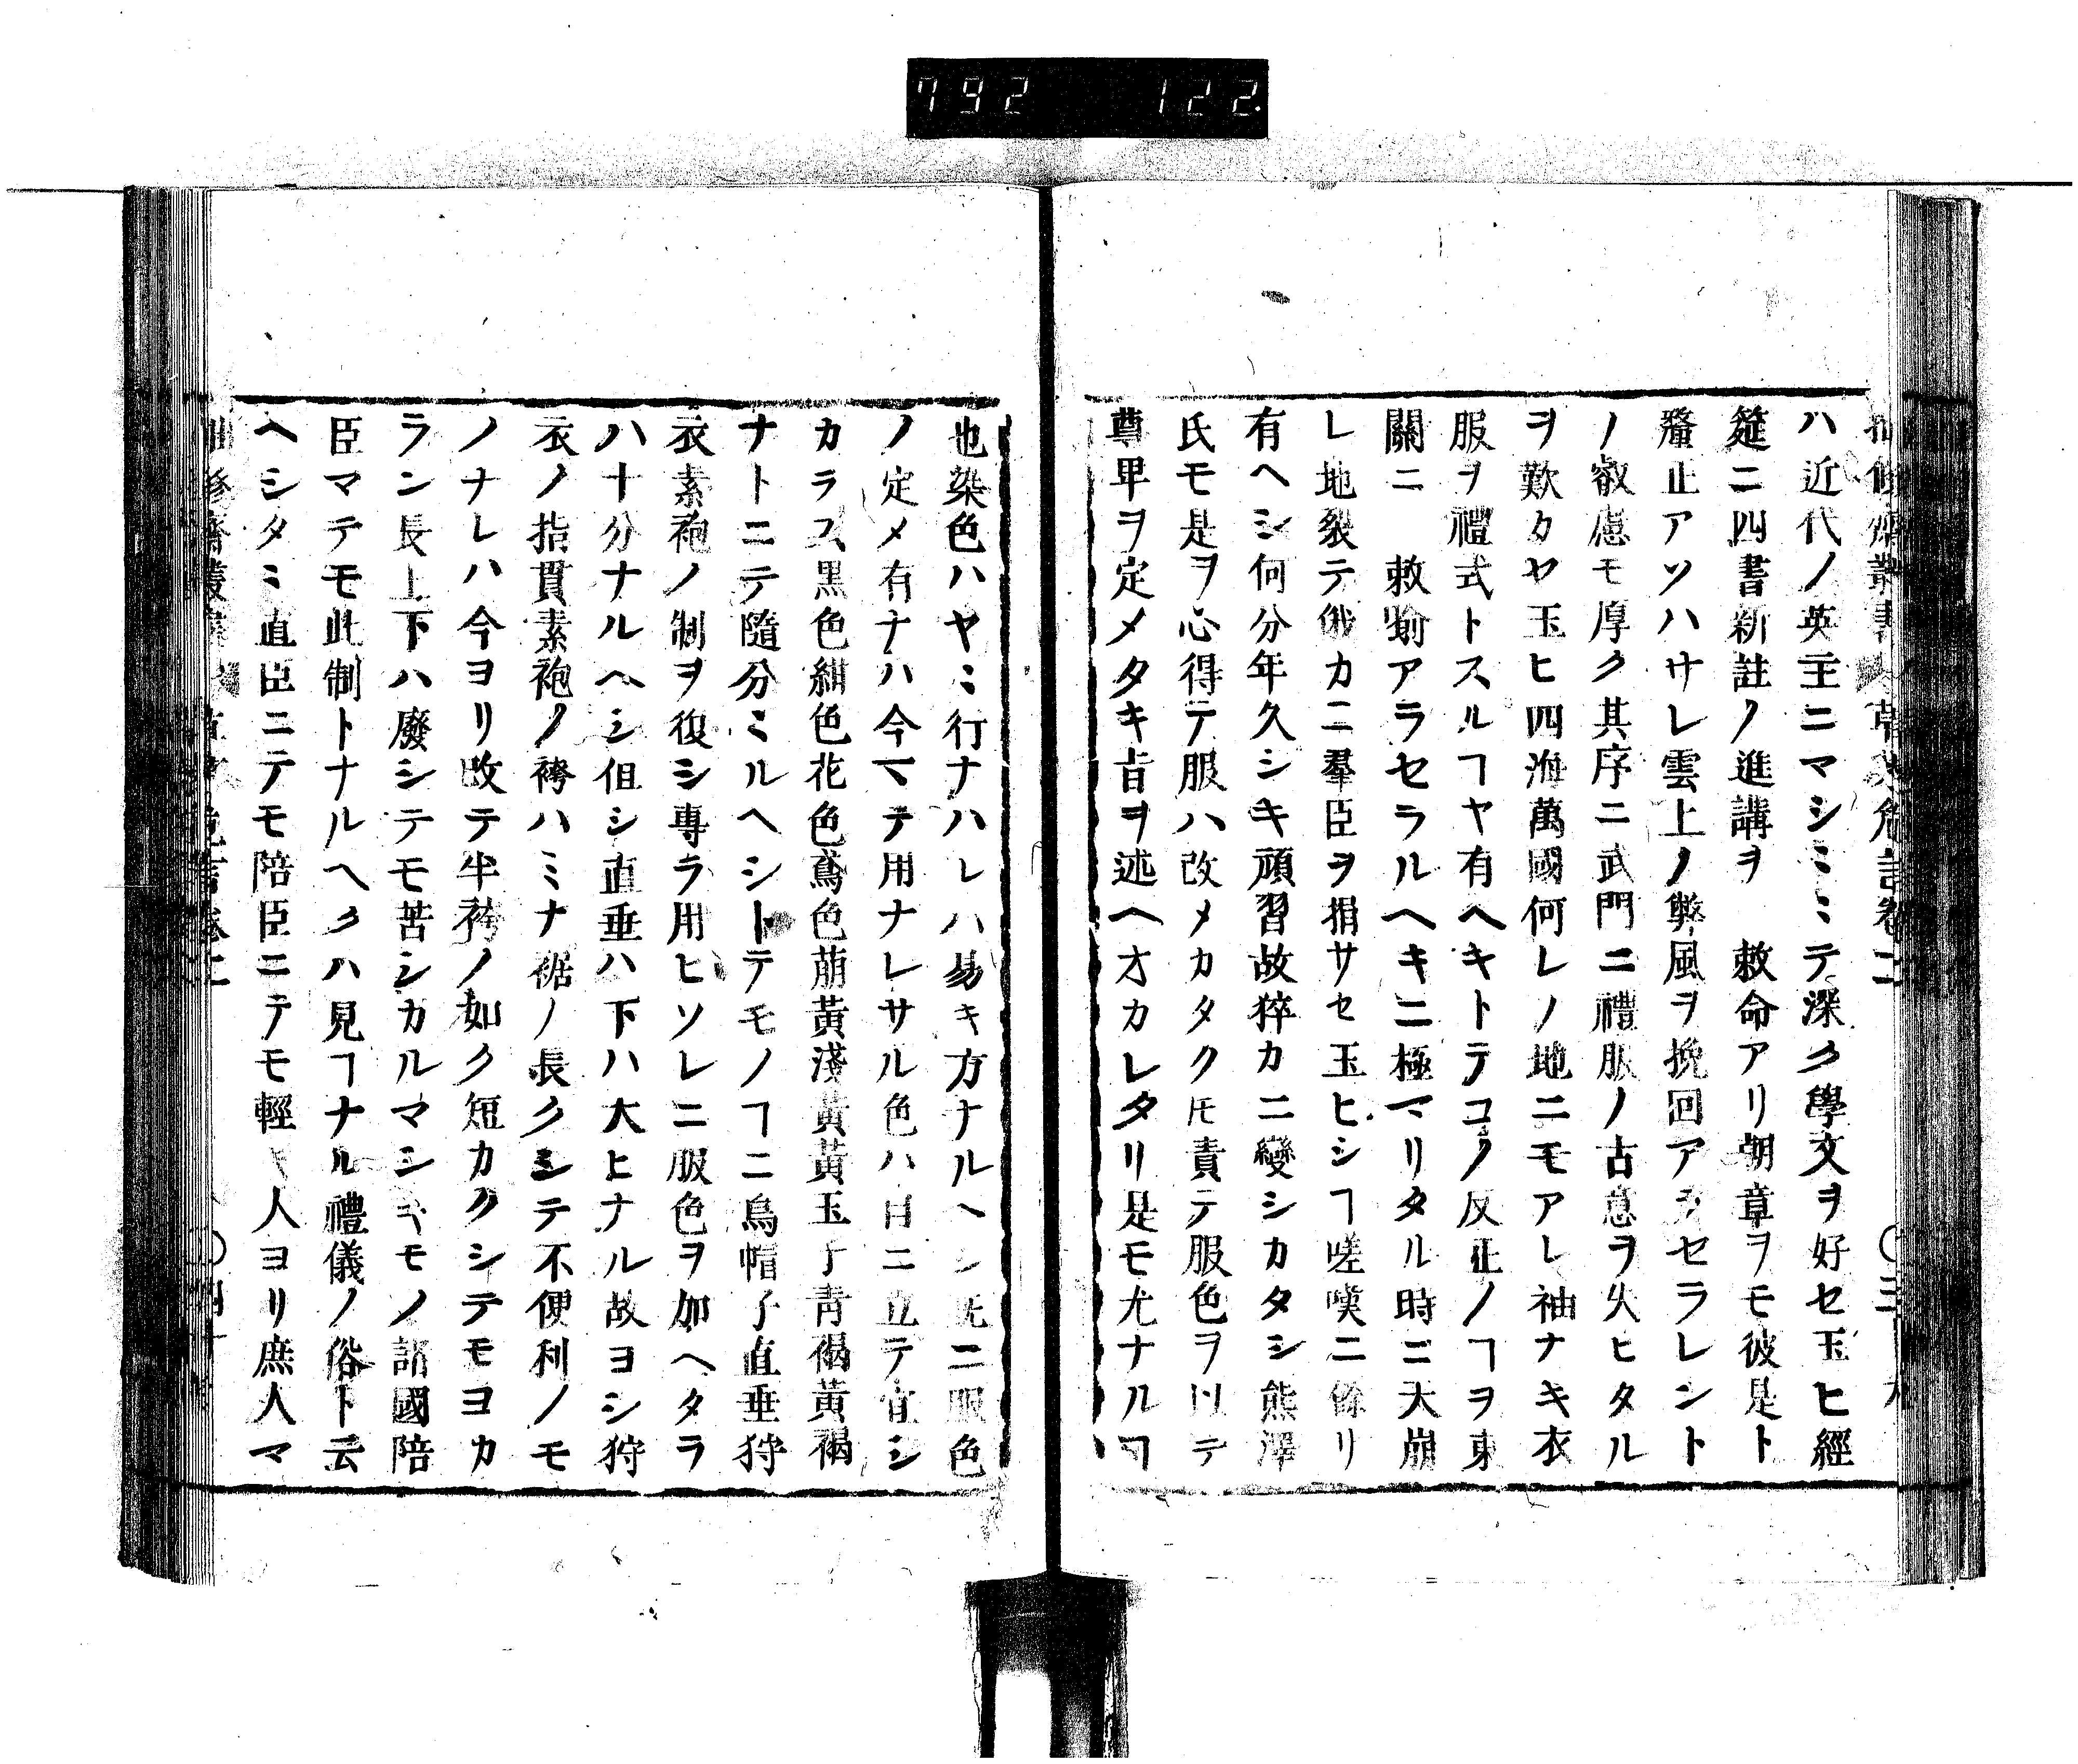 792 122
ハ近代ノ英主ニマシミミテ深ク學文ヲ好セ玉ヒ經
筵ニ四書新註ノ進講ヲ 敕命アリ朝章ヲモ彼是ト
釐止アソハサレ雲上ノ弊風ヲ挽回アラセラレント
ノ叡慮モ厚ク其序ニ武門ニ禮服ノ古意ヲ失ヒタル
ヲ歎カヤ玉ヒ四海萬國何レノ地ニモアレ袖ナキ衣
服ヲ禮式トスルヿヤ有ヘキトテコノ反正ノヿヲ東
關ニ 敕喻アラセラルヘキニ極マリタル時ニ天崩
レ地裂テ俄カニ羣臣ヲ捐サセ玉ヒシヿ嗟嘆ニ餘リ
有ヘシ何分年久シキ頑習故猝カニ變シカタシ熊澤
氏モ是ヲ心得テ服ハ改メカタクモ責テ服色ヲ以テ
尊卑ヲ定メタキ旨ヲ述ヘオカレタリ是モ尤ナルヿ
也染色ハヤミ行ナハレハ易キ方ナルヘシ既ニ服色
ノ定メ有ナハ今マテ用ナレサル色ハ目ニ立テ宜シ
カラス黑色紺色花色鳶色萠黃淺黃黃玉子靑褐黃褐
ナトニテ隨分ミルヘシトテモノヿニ烏帽子直垂狩
衣素袍ノ制ヲ復シ專ラ用ヒソレニ服色ヲ加ヘタラ
ハ十分ナルヘシ但シ直垂ハ下ハ大ヒナル故ヨシ狩
衣ノ指貫素袍ノ袴ハミナ裾ノ長クシテ不便利ノモ
ノナレハ今ヨリ改テ半袴ノ如ク短カクシテモヨカ
ラン長上下ハ廢シテモ苦シカルマシキモノ諸國陪
臣マテモ此制トナルヘクハ見ヿナル禮儀ノ俗ト云
ヘシタミ直臣ニテモ陪臣ニテモ輕キ人ヨリ庶人マ